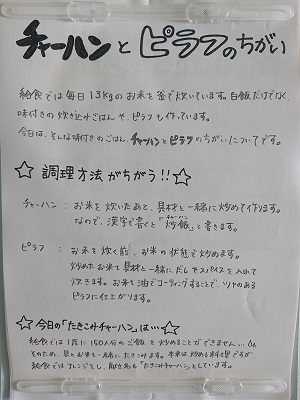 チャーハンとピラフのちがい
給食では毎日13kgのお米を釜で炊いています。白飯だけでなく、
味付きの炊き込みごはんや、ピラフも作っています。
今日は、そんな味付きのごはん、チャーハンとピラフのちがいについてです。
☆調理方法がちがう!!☆
チャーハン：お米を炊いたあと、具材と一緒に炒めて作ります。
なので、漢字で書くと「炒飯」と書きます。
ピラフ：お米を炊く前、お米の状態で炒めます。
炒めたお米を具材と一緒にだしやスパイスを入れて
炊きます。お米を油でコーティングすることで、ツヤのある
ピラフに仕上がります。
☆今日の「たきこみチャーハン」は…☆
給食では1度に150人分のご飯を炒めることができません…
そのため、具とお米を一緒にたきこみます。本来は炒める料理ですが、
給食ではアレンジをし、献立名も「たきこみチャーハン」としています。